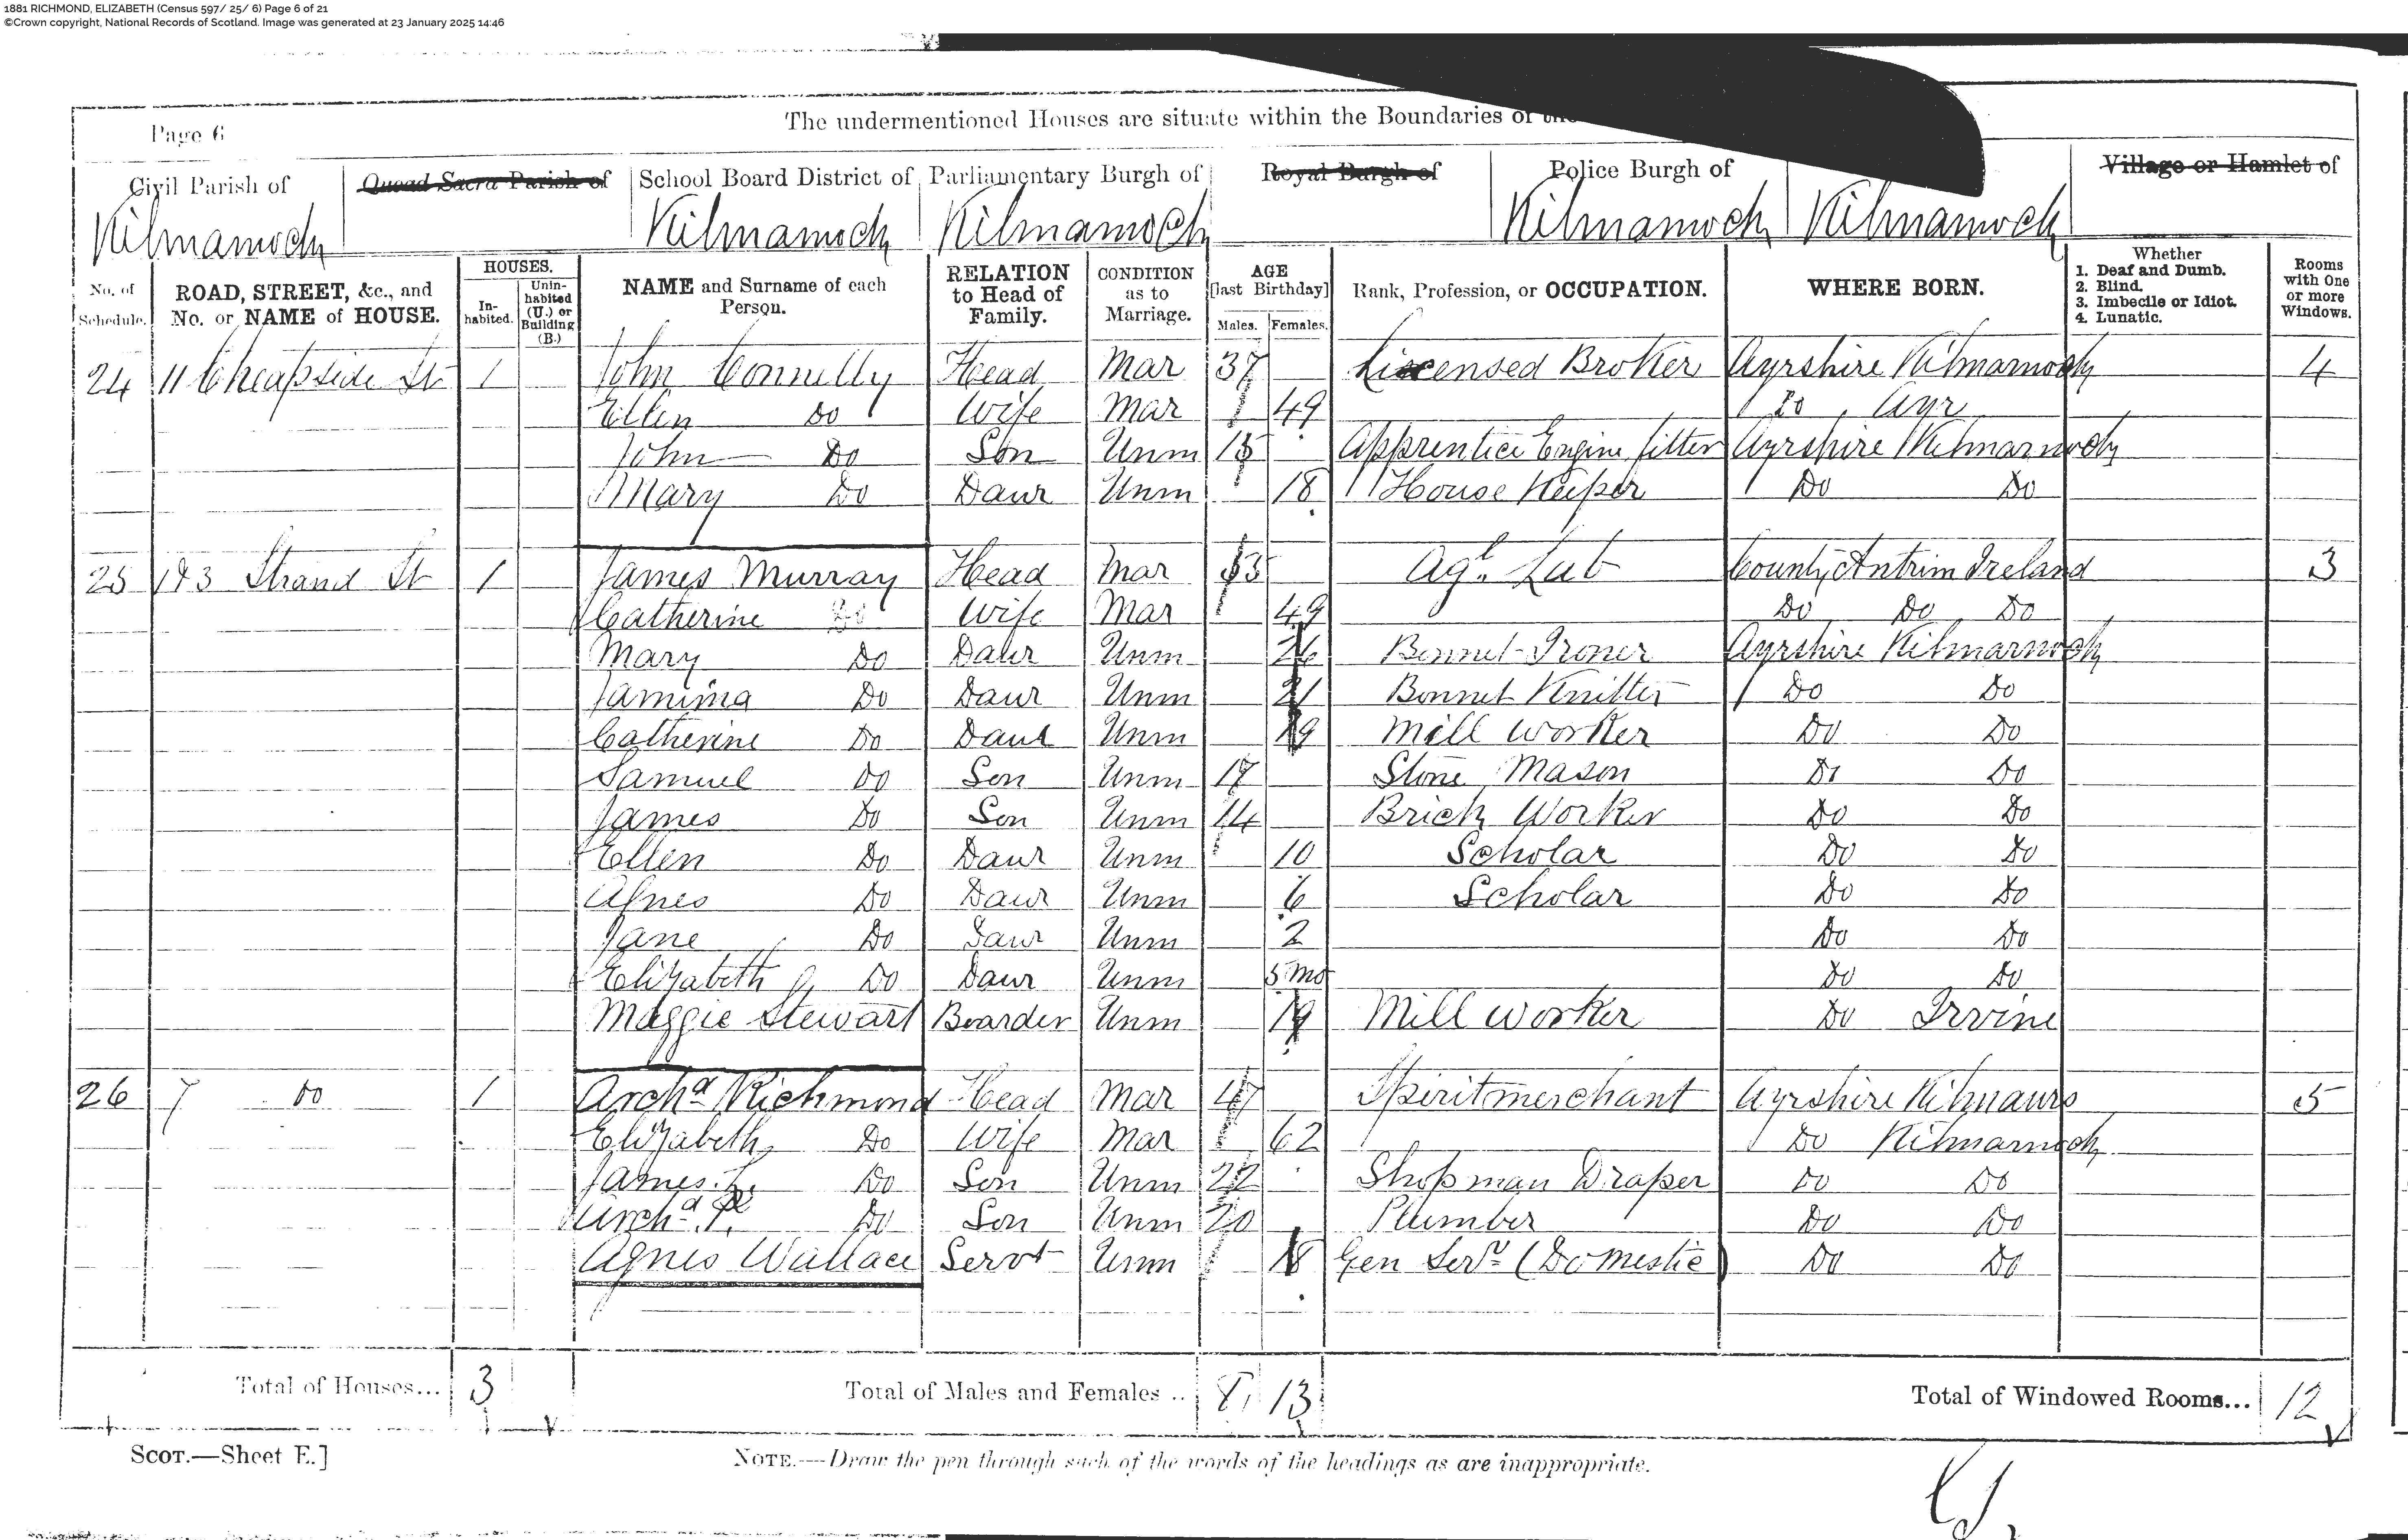 1881 RICHMOND, ELIZABETH (Census 597/ 25/ 6) Page 6 of 21
©Crown copyright, National Records of Scotland. Image was generated at 23 January 2025 14:46
Page 6
The undermentioned Houses are situate within the Boundaries of the
Civil Parish of Quoad Sacra Parish of School Board District of Parliamentary Burgh of Royal Burgh of Police Burgh of Village or Hamlet of
Kilmarnock Kilmarnock Kilmarnock Kilmarnock Kilmarnock
No. of Schedule. ROAD, STREET, &c., and No. or NAME of HOUSE. HOUSES. Inhabited. Uninhabited (U.) or Building (B.) NAME and Surname of each Person. RELATION to Head of Family. CONDITION as to Marriage. AGE [last Birthday] Males. Females. Rank, Profession, or OCCUPATION. WHERE BORN. Whether 1. Deaf and Dumb. 2. Blind. 3. Imbecile or Idiot. 4. Lunatic. Rooms with One or more Windows.
24 11 Cheapside St 1 John Connelly Head Mar 37 Liscensed Broker Ayrshire Kilmarnock 4
Ellen Do Wife Mar 49 Do Ayr
John Do Son Unm 15 Apprentice Engine fitter Ayrshire Kilmarnock
Mary Do Daur Unm 18 House Keeper Do Do
25 Strand St 1 James Murray Head Mar Agl. Lab County Antrim Ireland 3
Catherine Do Wife Mar 49 Do Do Do
Mary Do Daur Unm 26 Bonnet-Ironer Ayrshire Kilmarnock
Jamima Do Daur Unm 21 Bonnet Knitter Do Do
Catherine Do Daur Unm 19 Mill worker Do Do
Samuel Do Son Unm 17 Stone Mason Do Do
James Do Son Unm 14 Brick Worker Do Do
Ellen Do Daur Unm 10 Scholar Do Do
Agnes Do Daur Unm 6 Scholar Do Do
Jane Do Daur Unm 2 Do Do
Elizabeth Do Daur Unm 5 mo Do Do
Maggie Stewart Boarder Unm 19 Mill worker Do Irvine
26 7 Do 1 Archd Richmond Head Mar 47 Spiritmerchant Ayrshire Kilmaurs 5
Elizabeth Do Wife Mar 62 Do Kilmarnock
James Do Son Unm 22 Shopman Draper Do Do
Archd Do Son Unm 20 Plumber Do Do
Agnes Wallace Servt Unm 18 Gen Servt (Domestic) Do Do
Total of Houses... 3 Total of Males and Females .. 8 13 Total of Windowed Rooms... 12
SCOT.—Sheet E.]
NOTE.—Draw the pen through such of the words of the headings as are inappropriate.